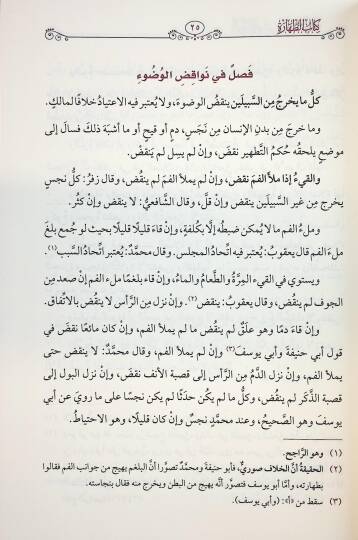 كتاب الطهارة
٢٥
فَصلٌ في نَواقِضِ الوُضُوءِ
كلُّ ما يخرجُ مِن السَّبيلَين ينقضُ الوضوءَ، ولا يُعتبر فيه الاعتيادُ خلافًا لمالكٍ.
وما خرجَ مِن بدنِ الإنسان مِن نَجَسٍ، دمٍ أو قيحٍ أو ما أشبَهَ ذلكَ فسالَ إلى
موضعٍ يلحقُه حُكمُ التَّطهير نقضَ، وإنْ لم يسِل لم يَنقضْ.
والقيءُ إذا ملأَ الفمَ نقض، وإنْ لم يملأ الفمَ لم ينقُض، وقال زفرُ: كلُّ نجسٍ
يخرج مِن غير السَّبيلَين ينقض وإنْ قلَّ، وقال الشَّافعيُّ: لا ينقض وإنْ كثُر.
وملءُ الفم ما لا يُمكن ضبطُه إلَّا بكُلفةٍ، وإنْ قاءَ قليلًا قليلًا بحيث لو جُمع بلغَ
ملءَ الفم قال يعقوبُ: يُعتبر فيه اتِّحادُ المجلس. وقال محمَّدٌ: يُعتبر اتِّحادُ السَّبب(١).
ويستوي في القيء المِرَّةُ والطَّعامُ والماءُ، وإنْ قاءَ بلغمًا ملء الفم إنْ صعد مِن
الجوف لم ينقُض، وقال يعقوبُ: ينقض(٢). وإنْ نزل مِن الرَّأس لا ينقُض بالاتِّفاق.
وإنْ قاءَ دمًا وهو علَقٌ لم ينقُض ما لم يملأ الفم، وإنْ كان مائعًا نقضَ في
قول أبي حنيفةَ وأبي يوسفَ(٣) وإنْ لم يملأ الفم، وقال محمَّدٌ: لا ينقض حتى
يملأ الفم، وإنْ نزل الدَّمُ مِن الرَّأس إلى قصبة الأنف نقضَ، وإنْ نزل البول إلى
قصبة الذَّكَر لم ينقُض، وكلُّ ما لم يكُن حدَثًا لم يكن نجسًا على ما رويَ عن أبي
يوسفَ وهو الصَّحيحُ، وعند محمَّدٍ نجسٌ وإنْ كان قليلًا، وهو الاحتياطُ.
(١) وهو الرَّاجح.
(٢) الحقيقةُ أنَّ الخلاف صوريٌّ، فأبو حنيفةَ ومحمَّدٌ تصوَّرا أنَّ البلغم يهيج من جوانب الفم فقالوا
بطهارته، وأمَّا أبو يوسف فتصوَّر أنَّه يهيج من البطن ويخرج منه فقال بنجاسته.
(٣) سقط من «أ»: (وأبي يوسف).